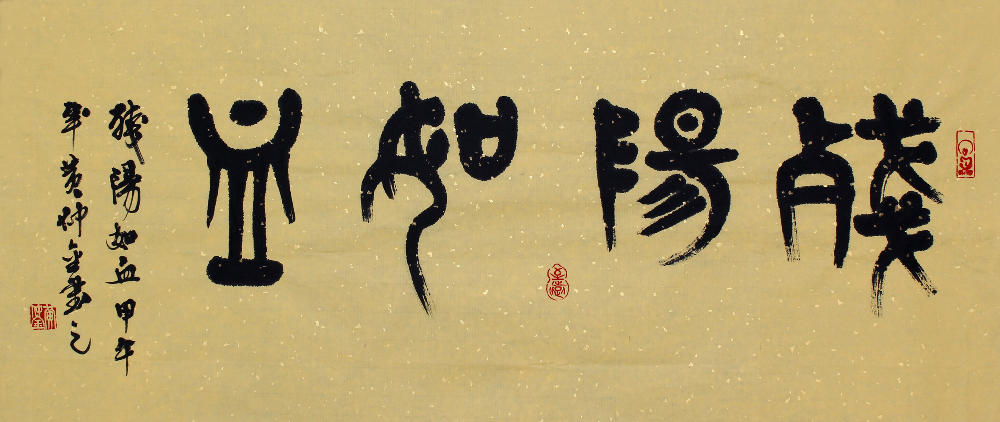 殘陽如血
殘陽如血甲午
年黄仲金書之